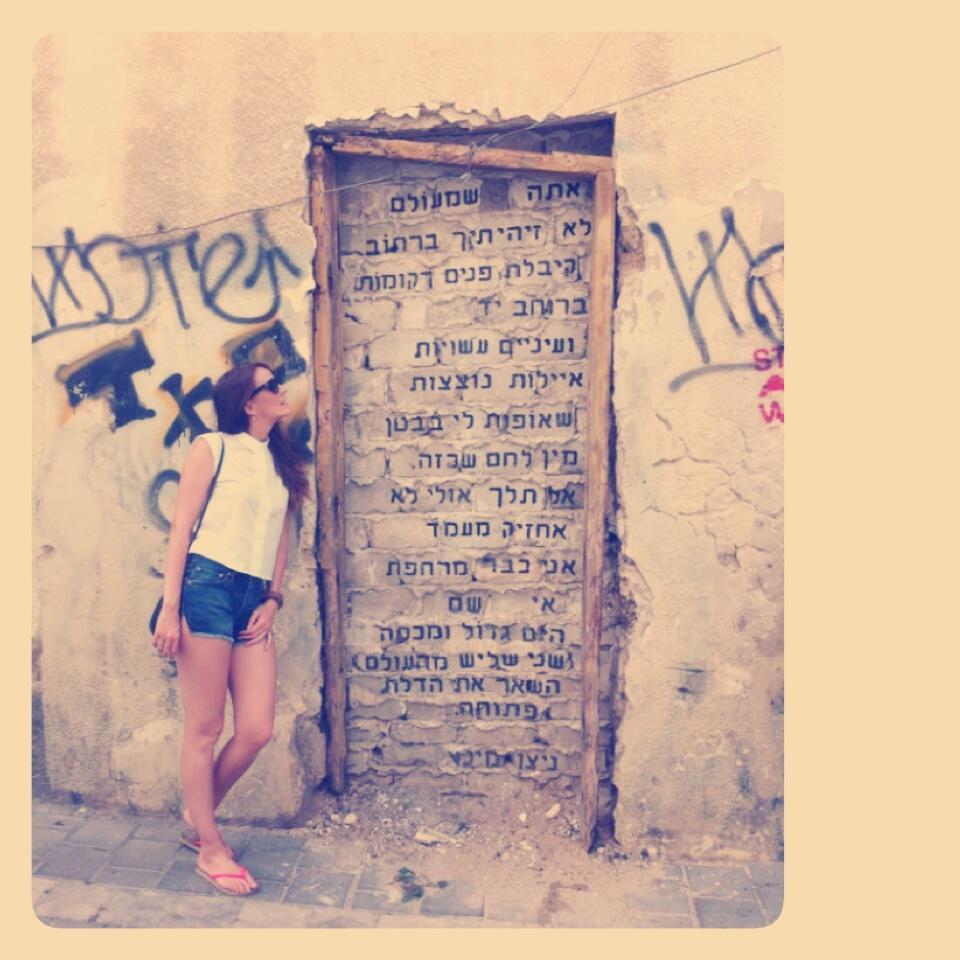 אתה שמעולם
לא זיהיתיך ברחוב
קיבלת פנים רקומות
ברוחב יד
ועיניים עשויות
איילות נוצצות
שאופות לי בבטן
מין לחם שכזה.
אל תלך אולי לא
אחזיק מעמד
אני כבר מרחפת
אי שם
הים גדול ומכסה
(שני שליש מהעולם)
השאר את הדלת
פתוחה.
ניצן מינץ